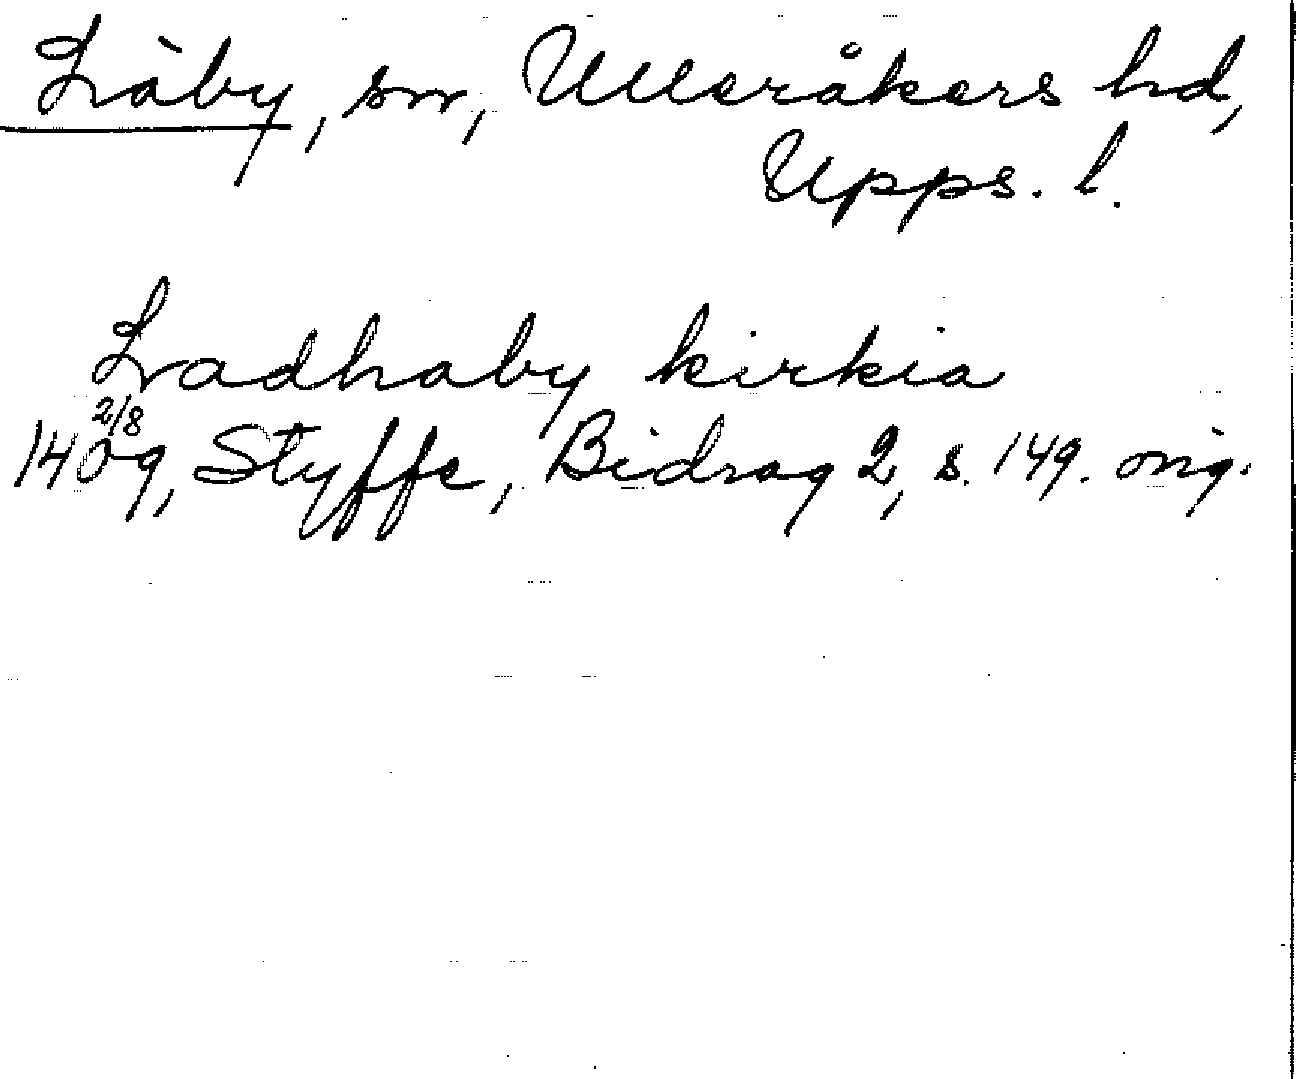 Låby, sn, Ulleråkers hd,
Upps. l.
Ladhaby kirkia
2/8
1409, Styffe, Bidrag 2, s. 149. orig.